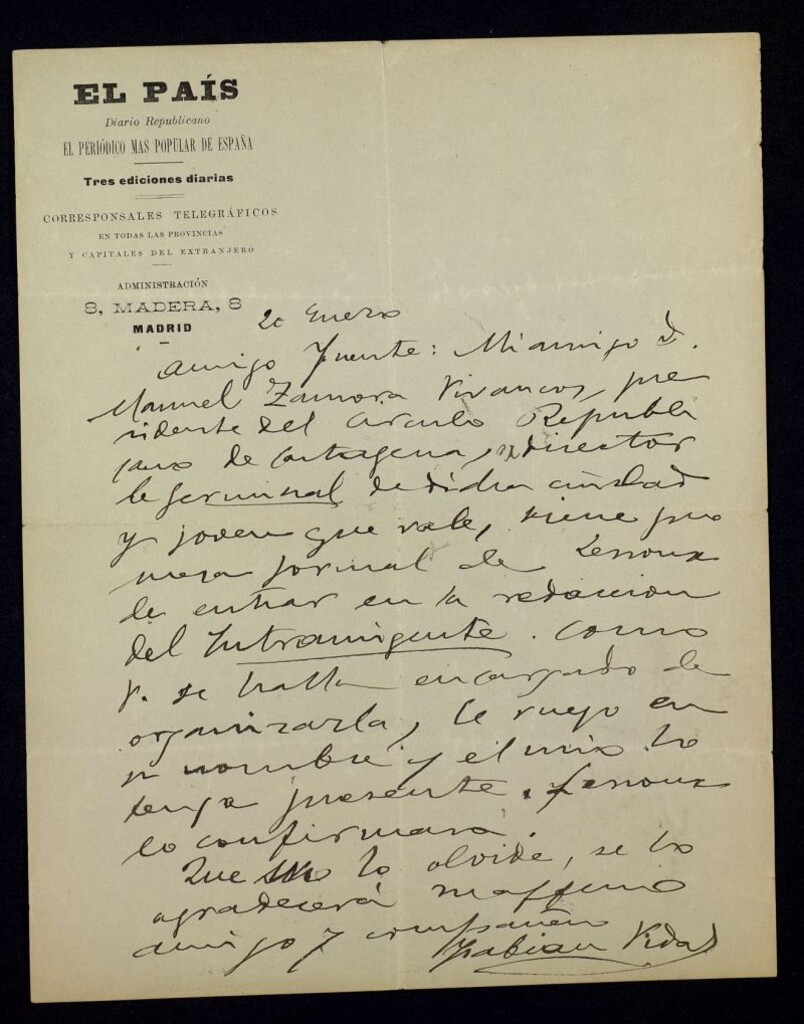 EL PAÍS
Diario Republicano
EL PERIÓDICO MAS POPULAR DE ESPAÑA
Tres ediciones diarias
CORRESPONSALES TELEGRÁFICOS
EN TODAS LAS PROVINCIAS
Y CAPITALES DEL EXTRANJERO
ADMINISTRACIÓN
8, MADERA, 8
MADRID
20 Enero
Amigo Fuente: Mi amigo D.
Manuel Zamora Vivancos, pre
sidente del Circulo Republi
cano de Cartagena, exdirector
de Germinal de dicha ciudad
y joven que vale, tiene pro
mesa formal de Lerroux
de entrar en la redaccion
del Intransigente. Como
V. se halla encargado de
organizarla, le ruego en
su nombre y el mio lo
tenga presente. Lerroux
lo confirmará.
Que no lo olvide, se lo
agradecerá
amigo y compañero
Fabian Vidal